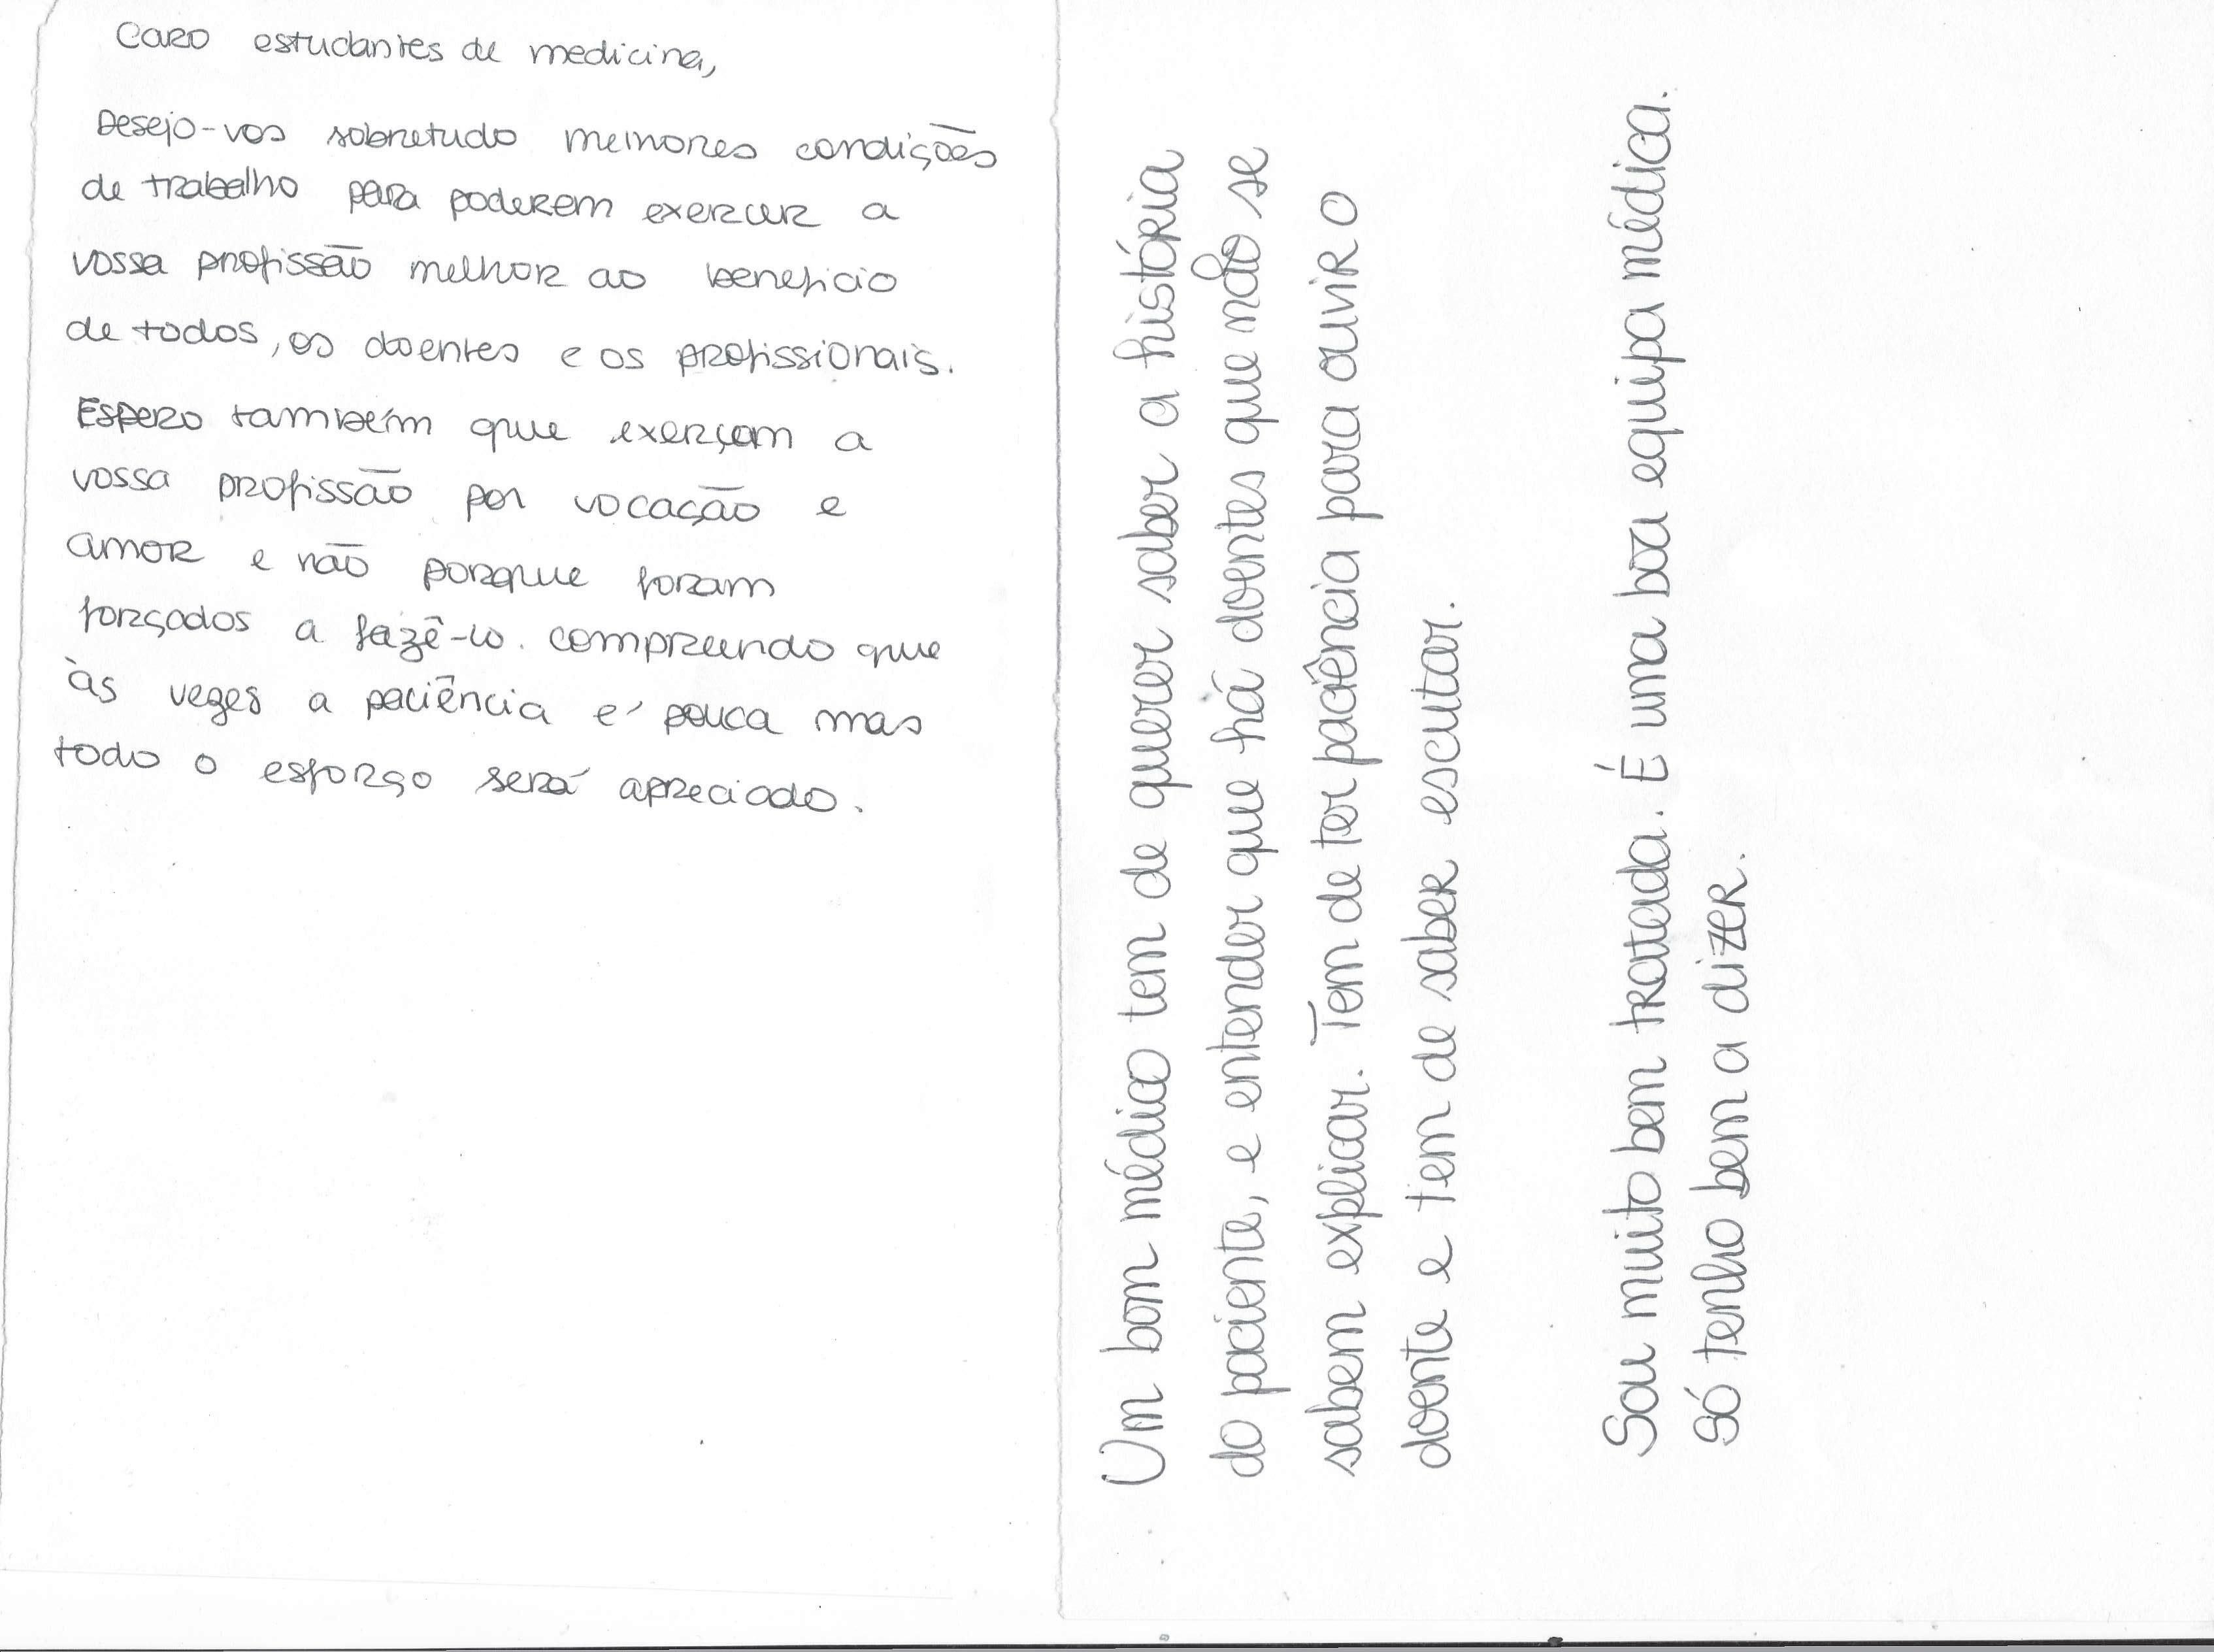 Caro estudantes de medicina,
Desejo-vos sobretudo melhores condições
de trabalho para poderem exercer a
vossa profissão melhor ao beneficio
de todos, os doentes e os profissionais.
Espero também que exerçam a
vossa profissão por vocação e
amor e não porque foram
forçados a fazê-lo. compreendo que
às vezes a paciência é pouca mas
todo o esforço será apreciado.
Um bom médico tem de querer saber a história
do paciente, e entender que há doentes que não se
sabem explicar. Tem de ter paciência para ouvir o
doente e tem de saber escutar.
Sou muito bem tratada. É uma boa equipa médica.
Só tenho bem a dizer.